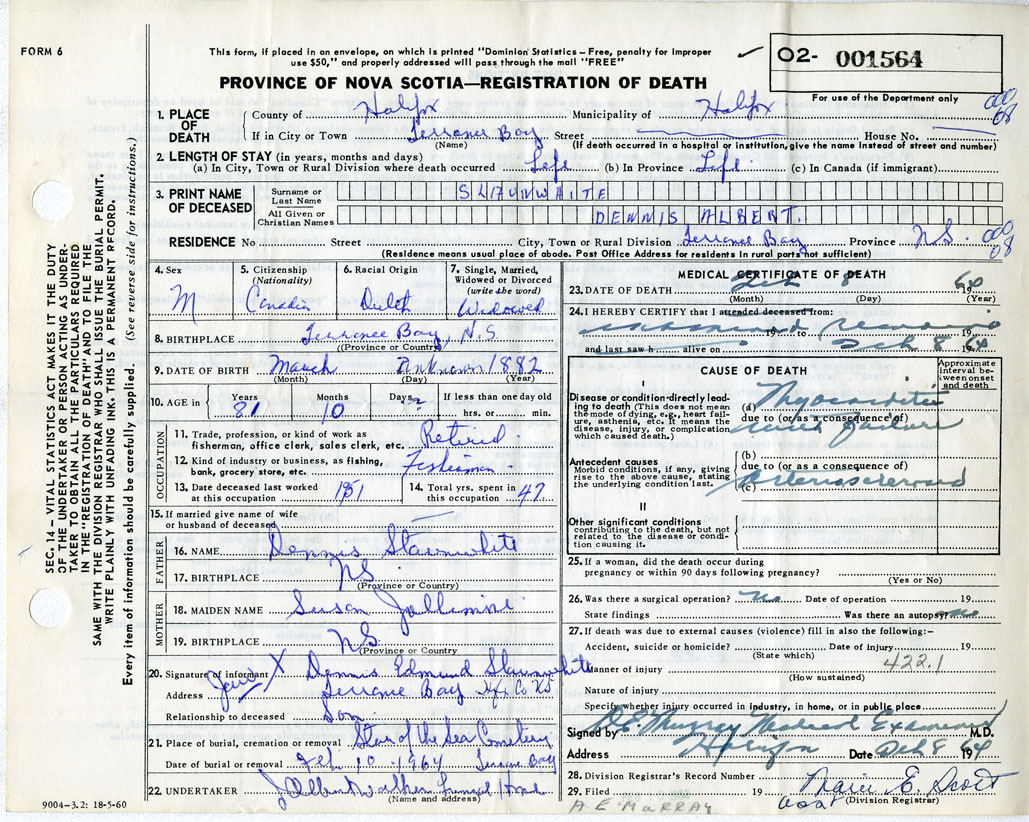 FORM 6
This form, if placed in an envelope, on which is printed "Dominion Statistics – Free, penalty for improper
use $50," and properly addressed will pass through the mail "FREE"
PROVINCE OF NOVA SCOTIA—REGISTRATION OF DEATH
02- 001564
For use of the Department only
SEC. 14 – VITAL STATISTICS ACT MAKES IT THE DUTY
OF THE UNDERTAKER OR PERSON ACTING AS UNDER-
TAKER TO OBTAIN ALL THE PARTICULARS REQUIRED
IN THE "REGISTRATION OF DEATH" AND TO FILE THE
SAME WITH THE DIVISION REGISTRAR WHO SHALL ISSUE THE BURIAL PERMIT.
WRITE PLAINLY WITH UNFADING INK. THIS IS A PERMANENT RECORD.
Every item of information should be carefully supplied. (See reverse side for instructions.)
1. PLACE OF DEATH
County of Halifax Municipality of Halifax 000 08
If in City or Town Terrance Bay Street House No.
(Name) (If death occurred in a hospital or institution, give the name instead of street and number)
2. LENGTH OF STAY (in years, months and days)
(a) In City, Town or Rural Division where death occurred Life (b) In Province Life (c) In Canada (if immigrant)
3. PRINT NAME OF DECEASED
Surname or Last Name SLAUNWAITE
All Given or Christian Names DENNIS ALBERT.
RESIDENCE No Street City, Town or Rural Division Terrance Bay Province N.S. 000 08
(Residence means usual place of abode. Post Office Address for residents in rural parts not sufficient)
4. Sex M
5. Citizenship (Nationality) Canadin
6. Racial Origin Dutch
7. Single, Married, Widowed or Divorced (write the word) Widowed
8. BIRTHPLACE Terrance Bay, N.S.
(Province or Country)
9. DATE OF BIRTH March Unknown 1882
(Month) (Day) (Year)
10. AGE in Years 81 Months 10 Days ? If less than one day old hrs. or min.
OCCUPATION
11. Trade, profession, or kind of work as fisherman, office clerk, sales clerk, etc. Retired
12. Kind of industry or business, as fishing, bank, grocery store, etc. Fisherman
13. Date deceased last worked at this occupation 1951
14. Total yrs. spent in this occupation 47
15. If married give name of wife or husband of deceased
FATHER
16. NAME Dennis Slaunwhite
17. BIRTHPLACE N.S.
(Province or Country)
MOTHER
18. MAIDEN NAME Susan Jollimore
19. BIRTHPLACE N.S.
(Province or Country)
20. Signature of informant X Dennis Edmund Slaunwhite
Address Terrance Bay Hfx Co NS
Relationship to deceased Son
21. Place of burial, cremation or removal Star of the Sea Cemetery
Date of burial or removal Feb. 10 - 1964 Terrance Bay
22. UNDERTAKER J Albert Walker Funeral Home
(Name and address)
9004–3.2: 18-5-60
MEDICAL CERTIFICATE OF DEATH
23. DATE OF DEATH Feb 8 1964
(Month) (Day) (Year)
24. I HEREBY CERTIFY that I attended deceased from:
examined remains 19 to 19
and last saw h alive on Feb 8 1964
CAUSE OF DEATH
Approximate interval between onset and death
I
Disease or condition directly leading to death (This does not mean the mode of dying, e.g., heart failure, asthenia, etc. It means the disease, injury, or complication which caused death.)
(a) Myocarditis
due to (or as a consequence of)
failure
Antecedent causes
Morbid conditions, if any, giving rise to the above cause, stating the underlying condition last.
(b)
due to (or as a consequence of)
(c) Arteriosclerosis
II
Other significant conditions contributing to the death, but not related to the disease or condition causing it.
25. If a woman, did the death occur during pregnancy or within 90 days following pregnancy?
(Yes or No)
26. Was there a surgical operation? no Date of operation 19
State findings Was there an autopsy? no
27. If death was due to external causes (violence) fill in also the following:–
Accident, suicide or homicide? Date of injury 19
(State which)
Manner of injury 422.1
(How sustained)
Nature of injury
Specify whether injury occurred in industry, in home, or in public place
Signed by D.E. Murray Medical Examiner M.D.
Address Halifax Date Feb 8 1964
28. Division Registrar's Record Number
29. Filed 19 E. Scott
(Division Registrar)
A.E MURRAY